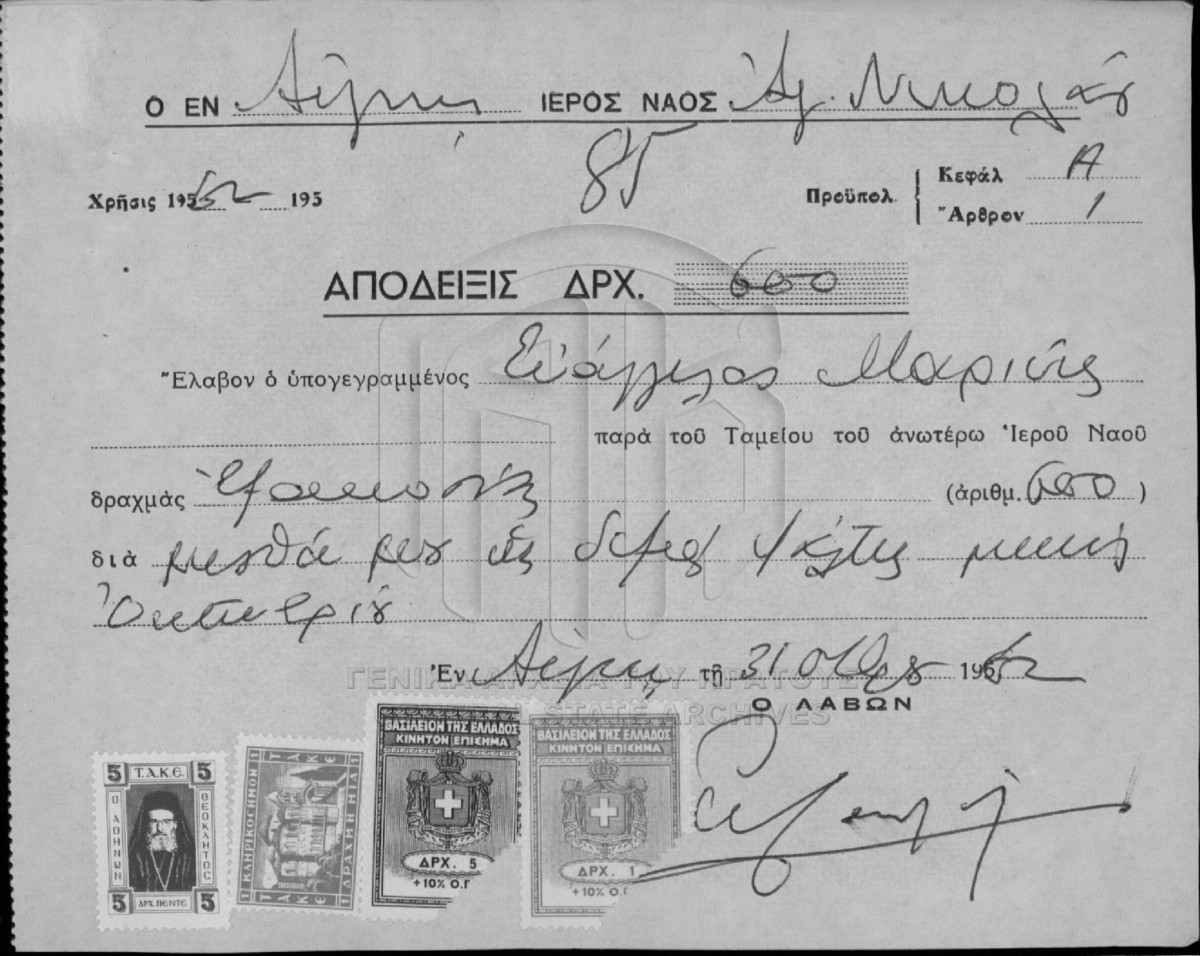 Ο ΕΝ Αἰγίνῃ ΙΕΡΟΣ ΝΑΟΣ Ἁγ. Νικολάου
85
Χρῆσις 195 62 195
Προϋπολ. Κεφάλ Α
Ἄρθρον 1
ΑΠΟΔΕΙΞΙΣ ΔΡΧ. 600
Ἔλαβον ὁ ὑπογεγραμμένος Εὐάγγελος
παρὰ τοῦ Ταμείου τοῦ ἀνωτέρω Ἱεροῦ Ναοῦ
δραχμὰς Ἑξακοσίας (ἀριθμ. 600 )
διὰ μισθό μου ὡς δεξιός ψάλτης μηνός
Ὀκτωβρίου
Ἐν Αἰγίνῃ τῇ 31 Ὀκτβρίου 1962
Ο ΛΑΒΩΝ
ΓΕΝΙΚΑ ΑΡΧΕΙΑ ΤΟΥ ΚΡΑΤΟΥΣ
STATE ARCHIVES
5 Τ.Α.Κ.Ε. 5
Ο ΑΘΗΝΩΝ ΘΕΟΚΛΗΤΟΣ
5 ΔΡΧ. ΠΕΝΤΕ 5
1 ΤΑΚΕ 1
ΚΛΗΡΙΚΟΣΗΜΟΝ
ΔΡΑΧΜΗ ΜΙΑ
1 ΤΑΚΕ 1
ΒΑΣΙΛΕΙΟΝ ΤΗΣ ΕΛΛΑΔΟΣ
ΚΙΝΗΤΟΝ ΕΠΙΣΗΜΑ
ΔΡΧ. 5
+10% Ο.Γ
ΒΑΣΙΛΕΙΟΝ ΤΗΣ ΕΛΛΑΔΟΣ
ΚΙΝΗΤΟΝ ΕΠΙΣΗΜΑ
ΔΡΧ. 1
+10% Ο.Γ